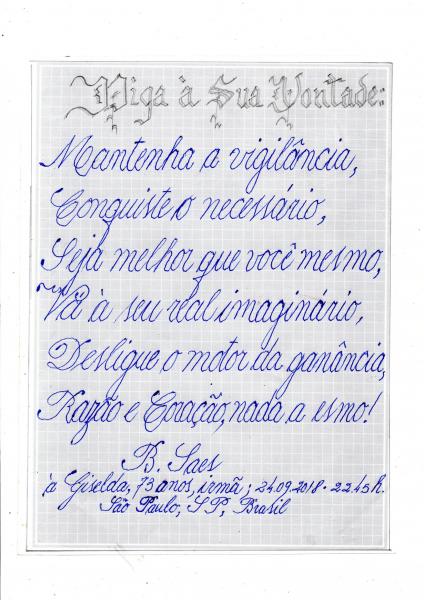 Diga à Sua Vontade:
Mantenha a vigilância,
Conquiste o necessário,
Seja melhor que você mesmo,
Vá à seu real imaginário,
Desligue o motor da ganância,
Razão e Coração, nada a esmo!
B. Saes
à Giselda, 73 anos, irmã; 24.09.2018 - 22.45h.
São Paulo, SP, Brasil